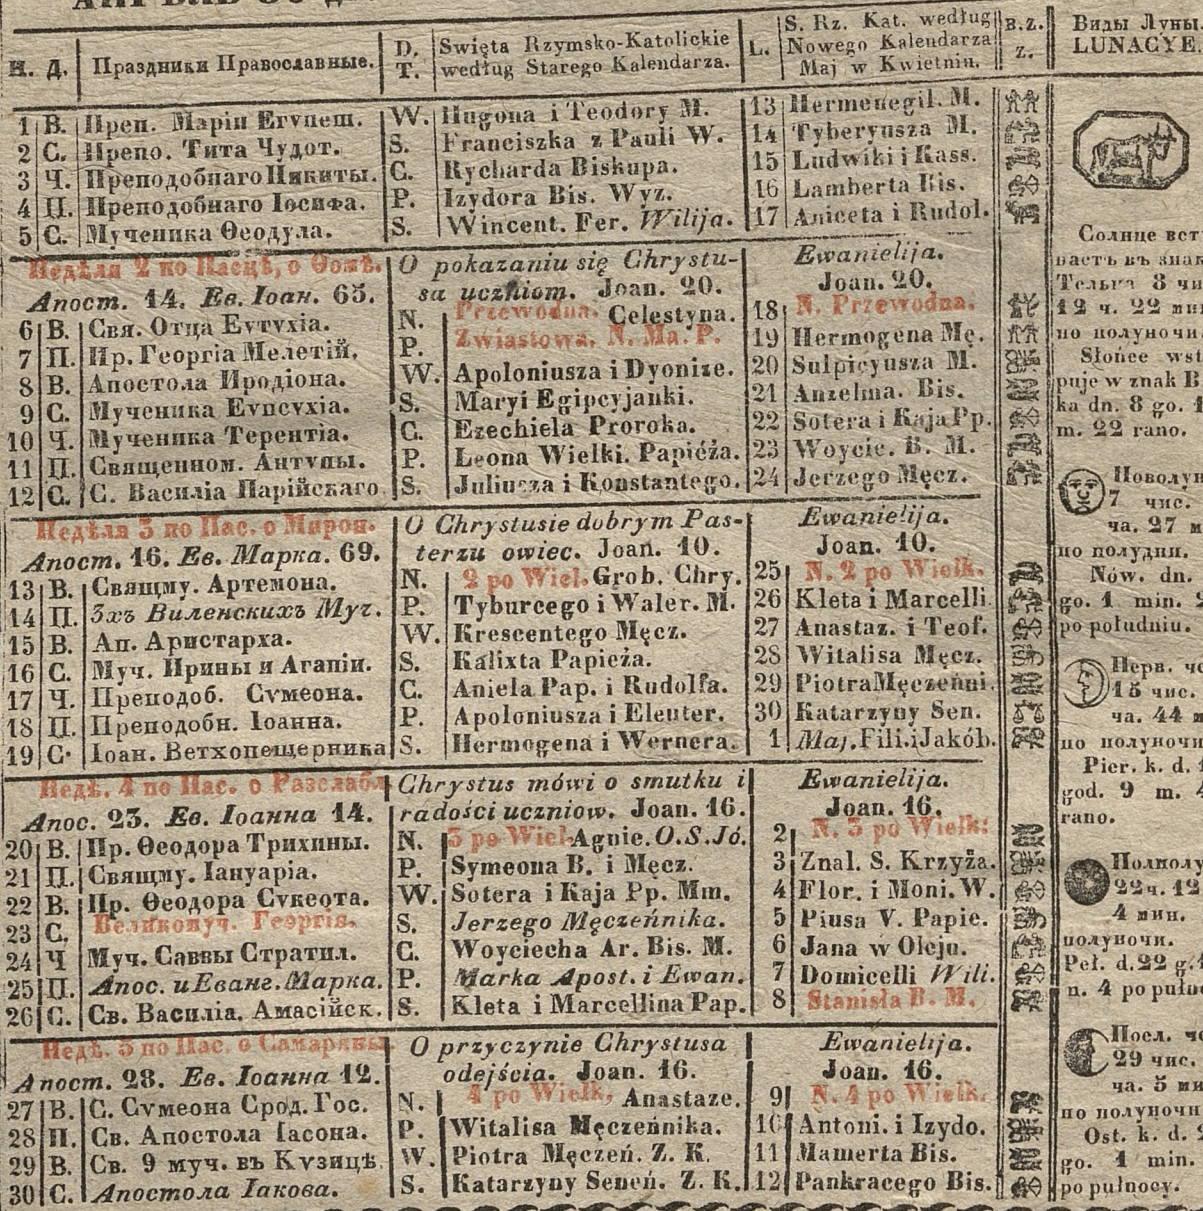 Н. Д. Праздники Православные. D. T. Swięta Rzymsko-Katolickie według Starego Kalendarza. L. S. Rz. Kat. według Nowego Kalendarza Maj w Kwietniu. B.Z. Z. Виды Луны. LUNACYE.
1 В. Преп. Маріи Егѵпет. W. Hugona i Teodory M. 13 Hermenegil. M.
2 С. Препо. Тита Чудот. S. Franciszka z Pauli W. 14 Tyberyusza M.
3 Ч. Преподобнаго Никиты. C. Rycharda Biskupa. 15 Ludwiki i Kass.
4 П. Преподобнаго Іосифа. P. Izydora Bis. Wyz. 16 Lamberta Bis.
5 С. Мученика Ѳеодула. S. Wincent. Fer. Wilija. 17 Aniceta i Rudol.
Недѣля 2 по Пасцѣ, о Ѳомѣ. O pokazaniu się Chrystu- Ewanielija.
Апост. 14. Ев. Іоан. 65. sa uczniom. Joan. 20. Joan. 20.
6 В. Свя. Отца Еѵтѵхіа. N. Przewodna. Celestyna. 18 N. Przewodna.
7 П. Пр. Георгіа Мелетій. P. Zwiastowa. N. Ma. P. 19 Hermogena Mę.
8 В. Апостола Иродіона. W. Apoloniusza i Dyonize. 20 Sulpicyusza M.
9 С. Мученика Еѵпсѵхіа. S. Maryi Egipcyjanki. 21 Anzelma. Bis.
10 Ч. Мученика Терентіа. C. Ezechiela Proroka. 22 Sotera i Kaja Pp.
11 П. Священном. Антѵпы. P. Leona Wielki. Papiéża. 23 Woycie. B. M.
12 С. С. Василіа Парійскаго S. Juliusza i Konstantego. 24 Jerzego Męcz.
Недѣля 3 по Пас. о Мирон. O Chrystusie dobrym Pas- Ewanielija.
Апост. 16. Ев. Марка. 69. terzu owiec. Joan. 10. Joan. 10.
13 В. Свящму. Артемона. N. 2 po Wiel. Grob. Chry. 25 N. 2 po Wielk.
14 П. 3хъ Виленскихъ Муч. P. Tyburcego i Waler. M. 26 Kleta i Marcelli
15 В. Ап. Аристарха. W. Krescentego Męcz. 27 Anastaz. i Teof.
16 С. Муч. Ирины и Агапіи. S. Kalixta Papieża. 28 Witalisa Męcz.
17 Ч. Преподоб. Сѵмеона. C. Aniela Pap. i Rudolfa. 29 Piotra Męczenni.
18 П. Преподобн. Іоанна. P. Apoloniusza i Eleuter. 30 Katarzyny Sen.
19 С. Іоан. Ветхопещерника S. Hermogena i Wernera. 1 Maj. Fili. i Jakób.
Недѣ. 4 по Пас. о Разслабл Chrystus mówi o smutku i Ewanielija.
Апос. 23. Ев. Іоанна 14. radości uczniow. Joan. 16. Joan. 16.
20 В. Пр. Ѳеодора Трихины. N. 3 po Wiel. Agnie. O. S. Jó. 2 N. 3 po Wielk:
21 П. Свящму. Іануаріа. P. Symeona B. i Męcz. 3 Znal. S. Krzyża.
22 В. Пр. Ѳеодора Сѵкеота. W. Sotera i Kaja Pp. Mm. 4 Flor. i Moni. W.
23 С. Великомуч. Георгія. S. Jerzego Męczeńnika. 5 Piusa V. Papie.
24 Ч Муч. Саввы Стратил. C. Woyciecha Ar. Bis. M. 6 Jana w Oleju.
25 П. Апос. и Еванг. Марка. P. Marka Apost. i Ewan. 7 Domicelli Wili.
26 С. Св. Василіа. Амасійск. S. Kleta i Marcellina Pap. 8 Stanisła B. M.
Недѣ. 5 по Пас. о Самаряны. O przyczynie Chrystusa Ewanielija.
Апост. 28. Ев. Іоанна 12. odejścia. Joan. 16. Joan. 16.
27 В. С. Сѵмеона Срод. Гос. N. 4 po Wielk, Anastaze. 9 N. 4 po Wielk.
28 П. Св. Апостола Іасона. P. Witalisa Męczeńnika. 10 Antoni. i Izydo.
29 В. Св. 9 муч. въ Кѵзицѣ. W. Piotra Męczeń. Z. K. 11 Mamerta Bis.
30 С. Апостола Іакова. S. Katarzyny Seneń. Z. K. 12 Pankracego Bis.
Солнце вст
паетъ въ знак
Тельца 8 чи
12 ч. 22 мин
по полуночи.
Słońce wst
puje w znak B
ka dn. 8 go. 1
m. 22 rano.
Новолун
7 чис.
ча. 27 м
по полудни.
Nów. dn.
go. 1 min. 2
po południu.
Перв. че
15 чис.
ча. 44 м
по полуночи
Pier. k. d. 1
god. 9 m. 4
rano.
Полнолу
22 ч. 12
4 мин.
полуночи.
Peł. d. 22 g. 1
n. 4 po pułno
Посл. че
29 чис.
ча. 5 ми
по полуночи
Ost. k. d. 2
go. 1 min.
po pułnocy.